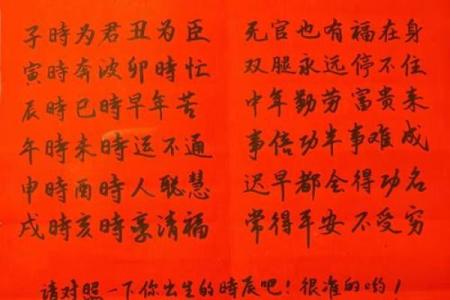 子時为君丑为臣 无官也有福在身
寅時奔波卯時忙 双腿永远停不住
辰時巳時早年苦 中年勤劳富贵来
午時未時运不通 事倍功半事难成
申時酉時人聪慧 迟早都会得功名
戌時亥時享清福 常得平安不受穷
请对照一下你出生的時辰吧！很准的哟！